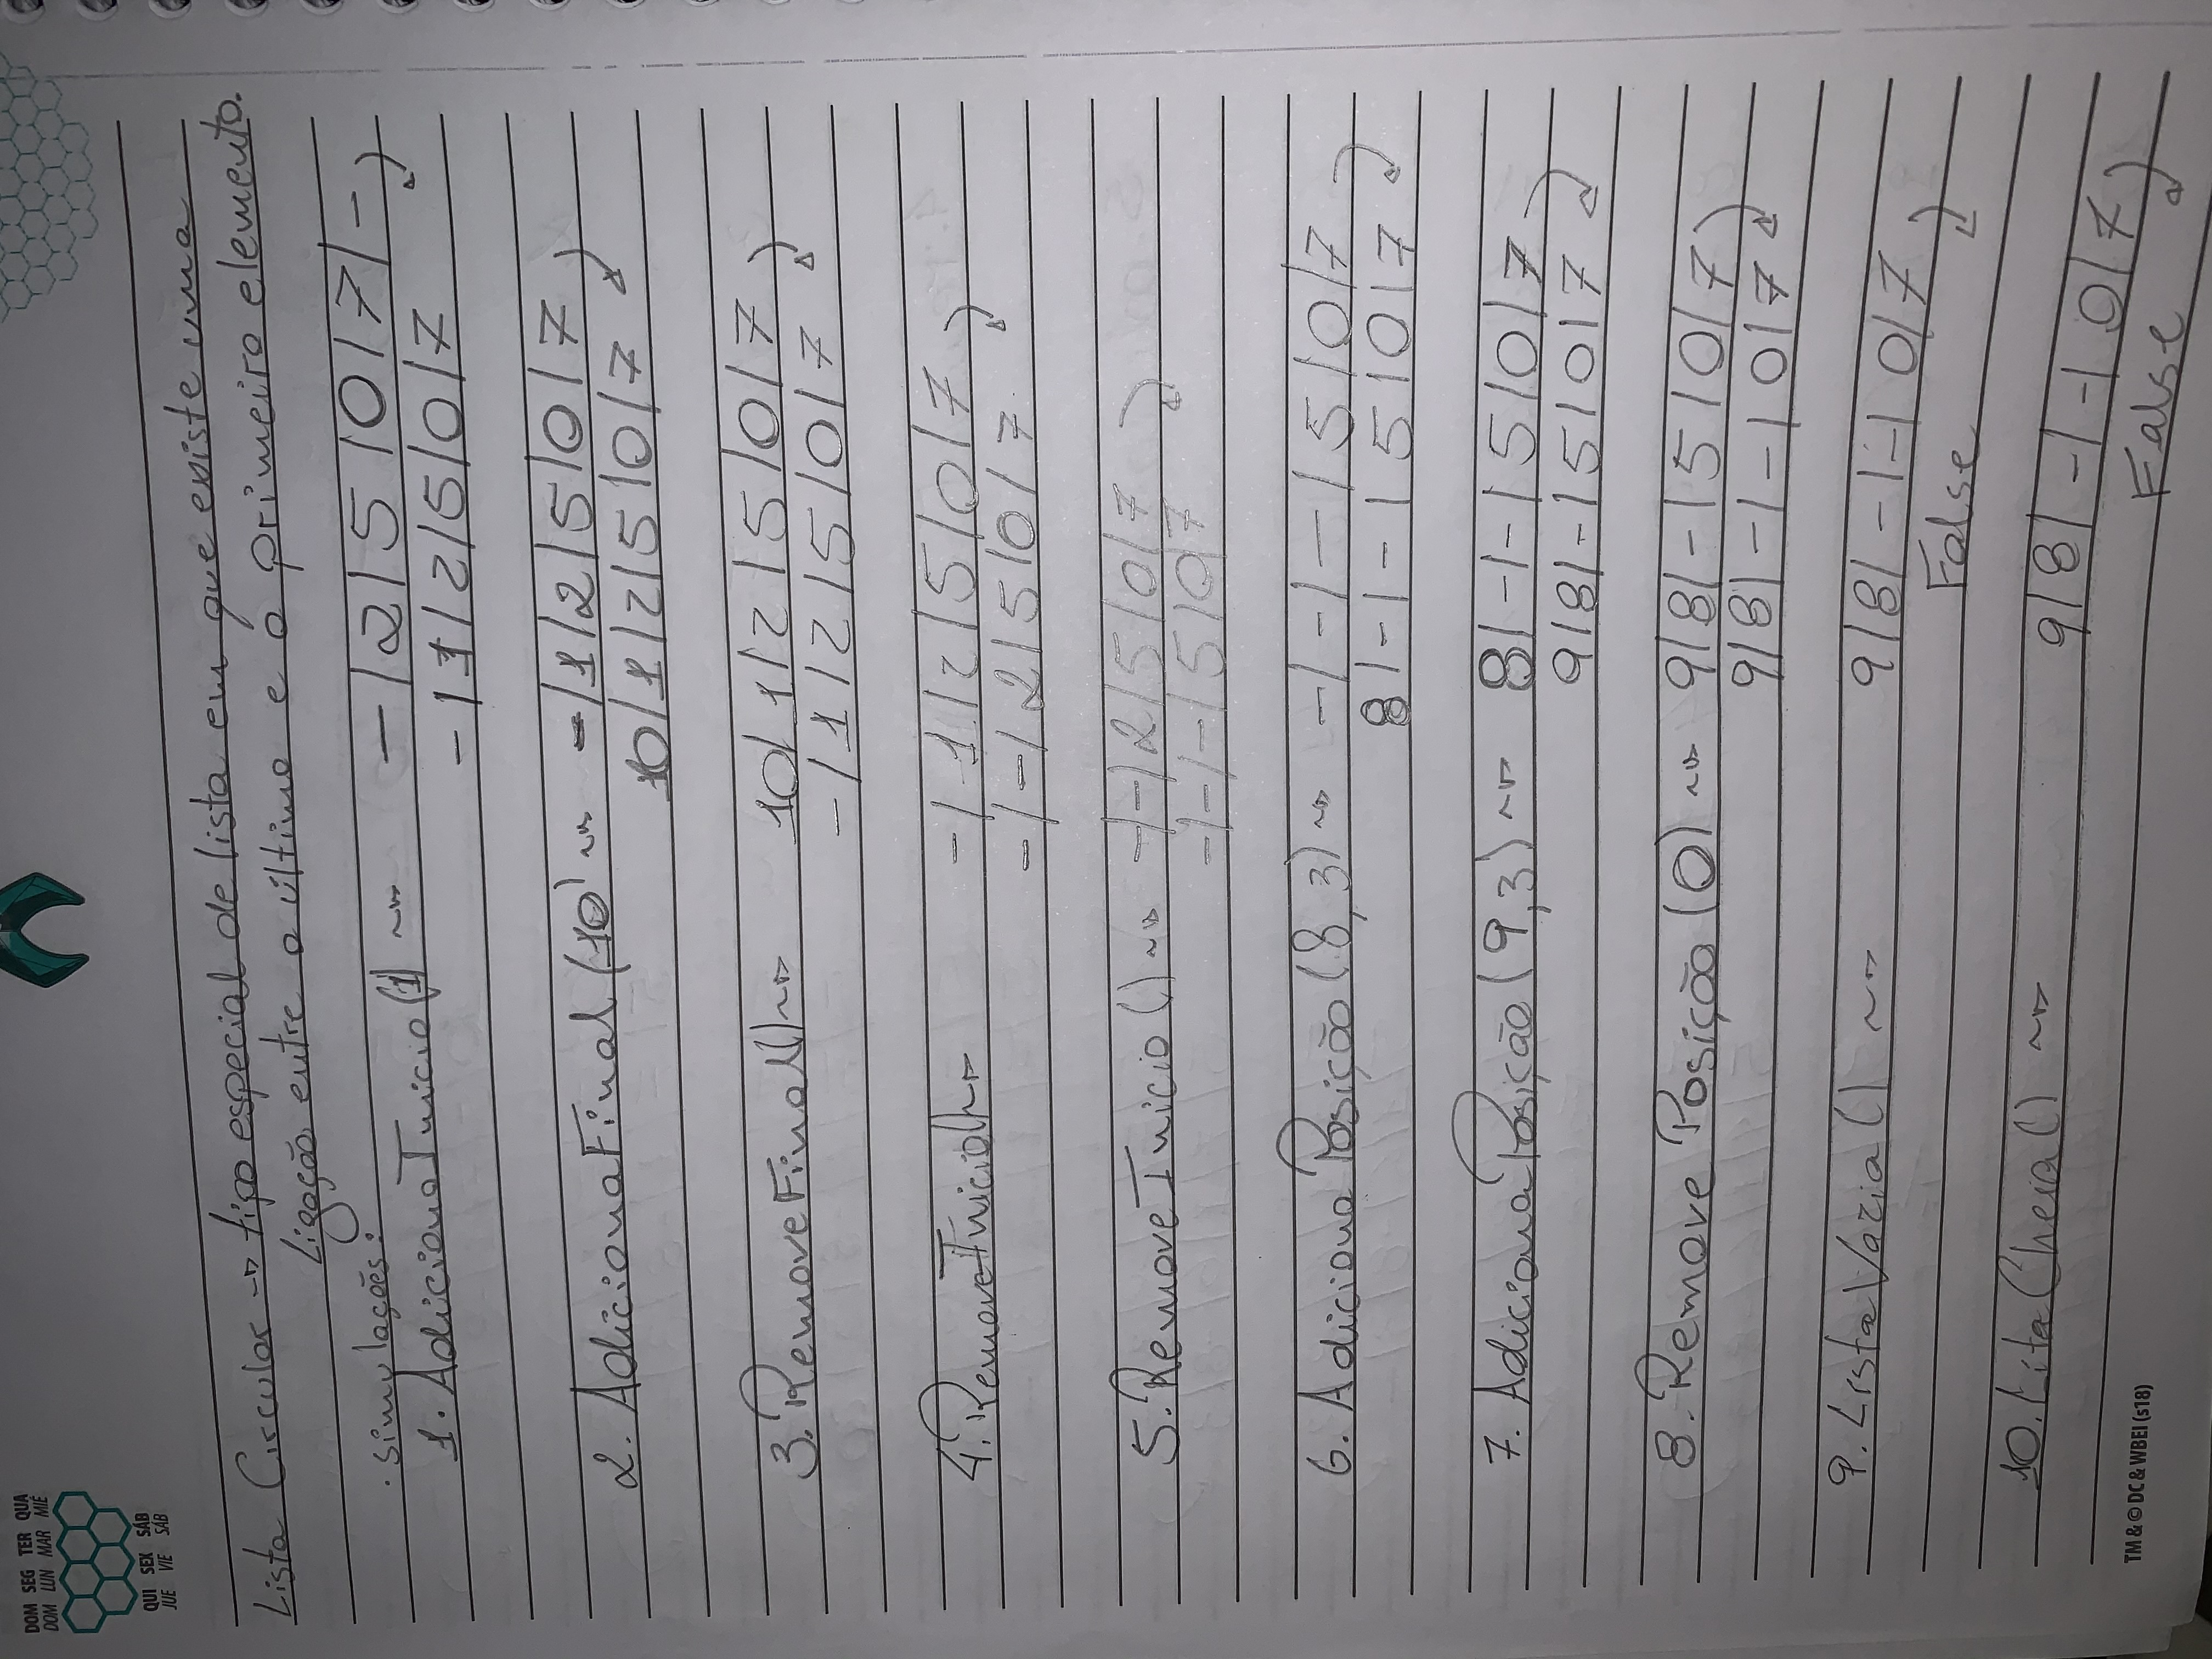 DOM SEG TER QUA
DOM LUN MAR MIÉ
QUI SEX SÁB
JUE VIE SÁB
Lista Circular → tipo especial de lista em que existe uma
Ligação entre o último e o primeiro elemento.
· simulações:
1. AdicionaInicio(1) ~> - | 2 | 5 | 0 | 7 | -
- | 1 | 2 | 5 | 0 | 7
2. AdicionaFinal (10) ~> - | 1 | 2 | 5 | 0 | 7
10 | 1 | 2 | 5 | 0 | 7
3. RemoveFinal() ~> 10 | 1 | 2 | 5 | 0 | 7
- | 1 | 2 | 5 | 0 | 7
4. RemoveInicio() ~> - | 1 | 2 | 5 | 0 | 7
- | - | 2 | 5 | 0 | 7
5. RemoveInicio () ~> - | - | 2 | 5 | 0 | 7
- | - | - | 5 | 0 | 7
6. Adiciona Posição (8,3) ~> - | - | - | 5 | 0 | 7
8 | - | - | 5 | 0 | 7
7. AdicionaPosição (9,3) ~> 8 | - | - | 5 | 0 | 7
9 | 8 | - | 5 | 0 | 7
8. Remove Posição (0) ~> 9 | 8 | - | 5 | 0 | 7
9 | 8 | - | - | 0 | 7
9. ListaVazia () ~> 9 | 8 | - | - | 0 | 7
False
10. LitaCheia () ~> 9 | 8 | - | - | 0 | 7
False
TM & © DC & WBEI (s18)